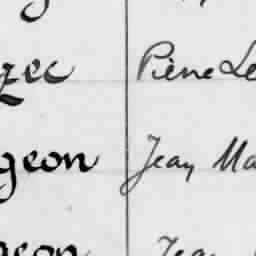 zec Pierre Le
geon Jean Ma
geon Jean